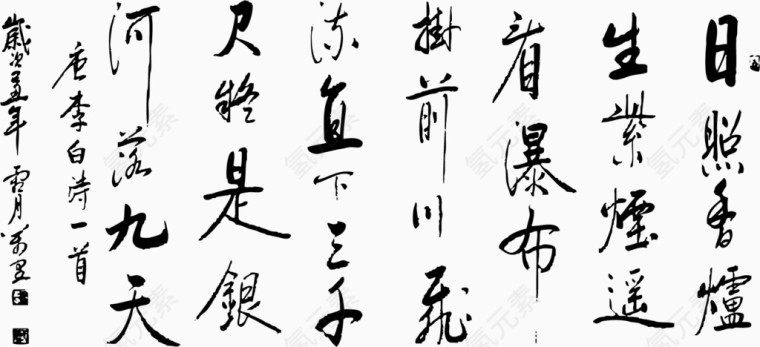 日照香爐
生紫煙遥
看瀑布
掛前川飛
流直下三千
尺疑是銀
河落九天
唐李白詩一首
歲次年 月
氢元素